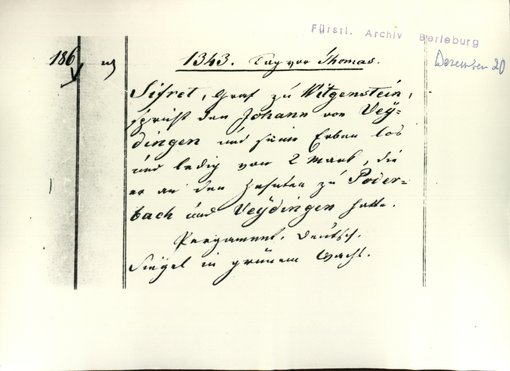 Fürstl. Archiv Berleburg
Dezember 20
186
1343. Tag vor Thomas.
Sifret, Graf zu Witgenstein,
spricht den Johann von Vey-
dingen und seine Erben los
und ledig von 2 Mark, die
er an den Zehnten zu Poder-
bach und Veydingen hatte.
Pergament, Deutsch.
Siegel in grünem Wachs.